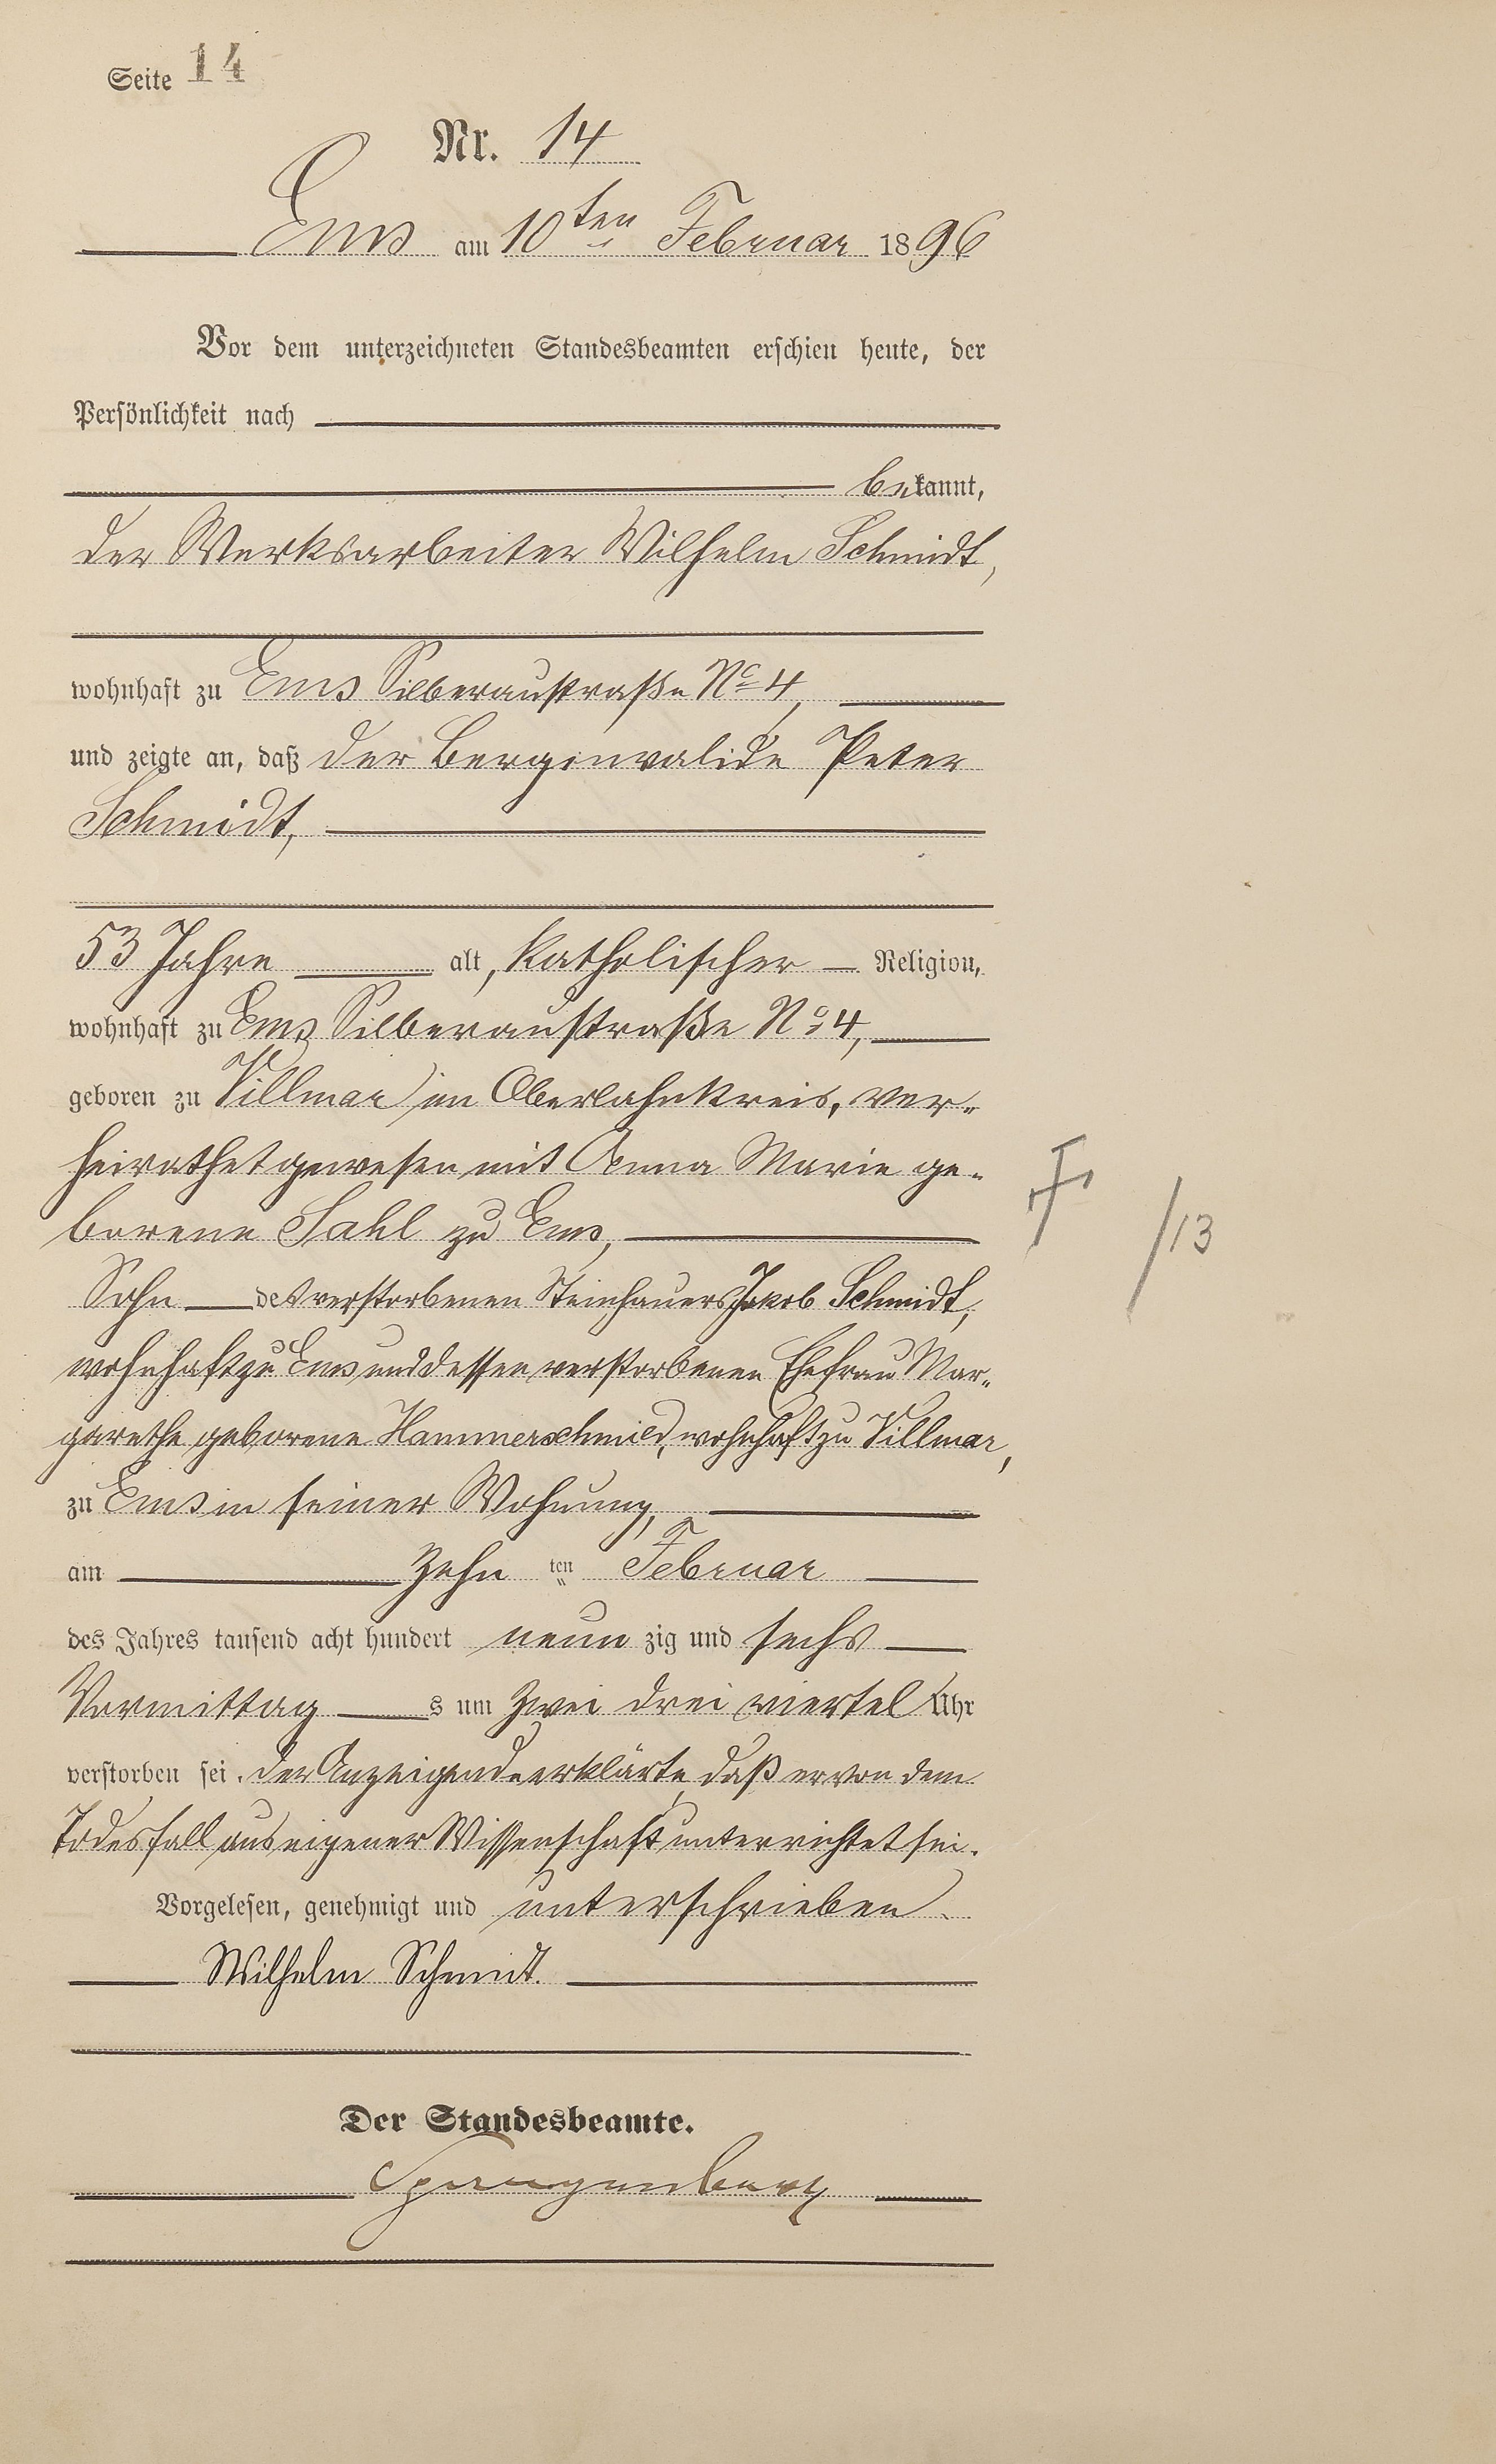 Seite 14
Nr. 14
Ems am 10ten Februar 1896
Vor dem unterzeichneten Standesbeamten erschien heute, der
Persönlichkeit nach
bekannt,
der Werksarbeiter Wilhelm Schmidt,
wohnhaft zu Ems Silberaustraße No 4,
und zeigte an, daß der Berginvalide Peter
Schmidt,
53 Jahre alt, katholischer Religion,
wohnhaft zu Ems Silberaustraße No 4,
geboren zu Villmar im Oberlahnkreis, ver-
heirathet gewesen mit Anna Marie ge-
borene Sahl zu Ems,
Sohn des verstorbenen Steinhauers Jakob Schmidt,
wohnhaft zu Ems und dessen verstorbenen Ehefrau Mar-
garethe geborene Hammerschmied, wohnhaft zu Villmar,
zu Ems in seiner Wohnung,
am zehn ten Februar
des Jahres tausend acht hundert neun zig und sechs
Vormittag s um zwei drei viertel Uhr
verstorben sei. Der Anzeigende erklärte, daß er von dem
Todesfall aus eigener Wissenschaft unterrichtet sei.
Vorgelesen, genehmigt und unterschrieben.
Wilhelm Schmidt.
Der Standesbeamte.
Spangenberg
/13